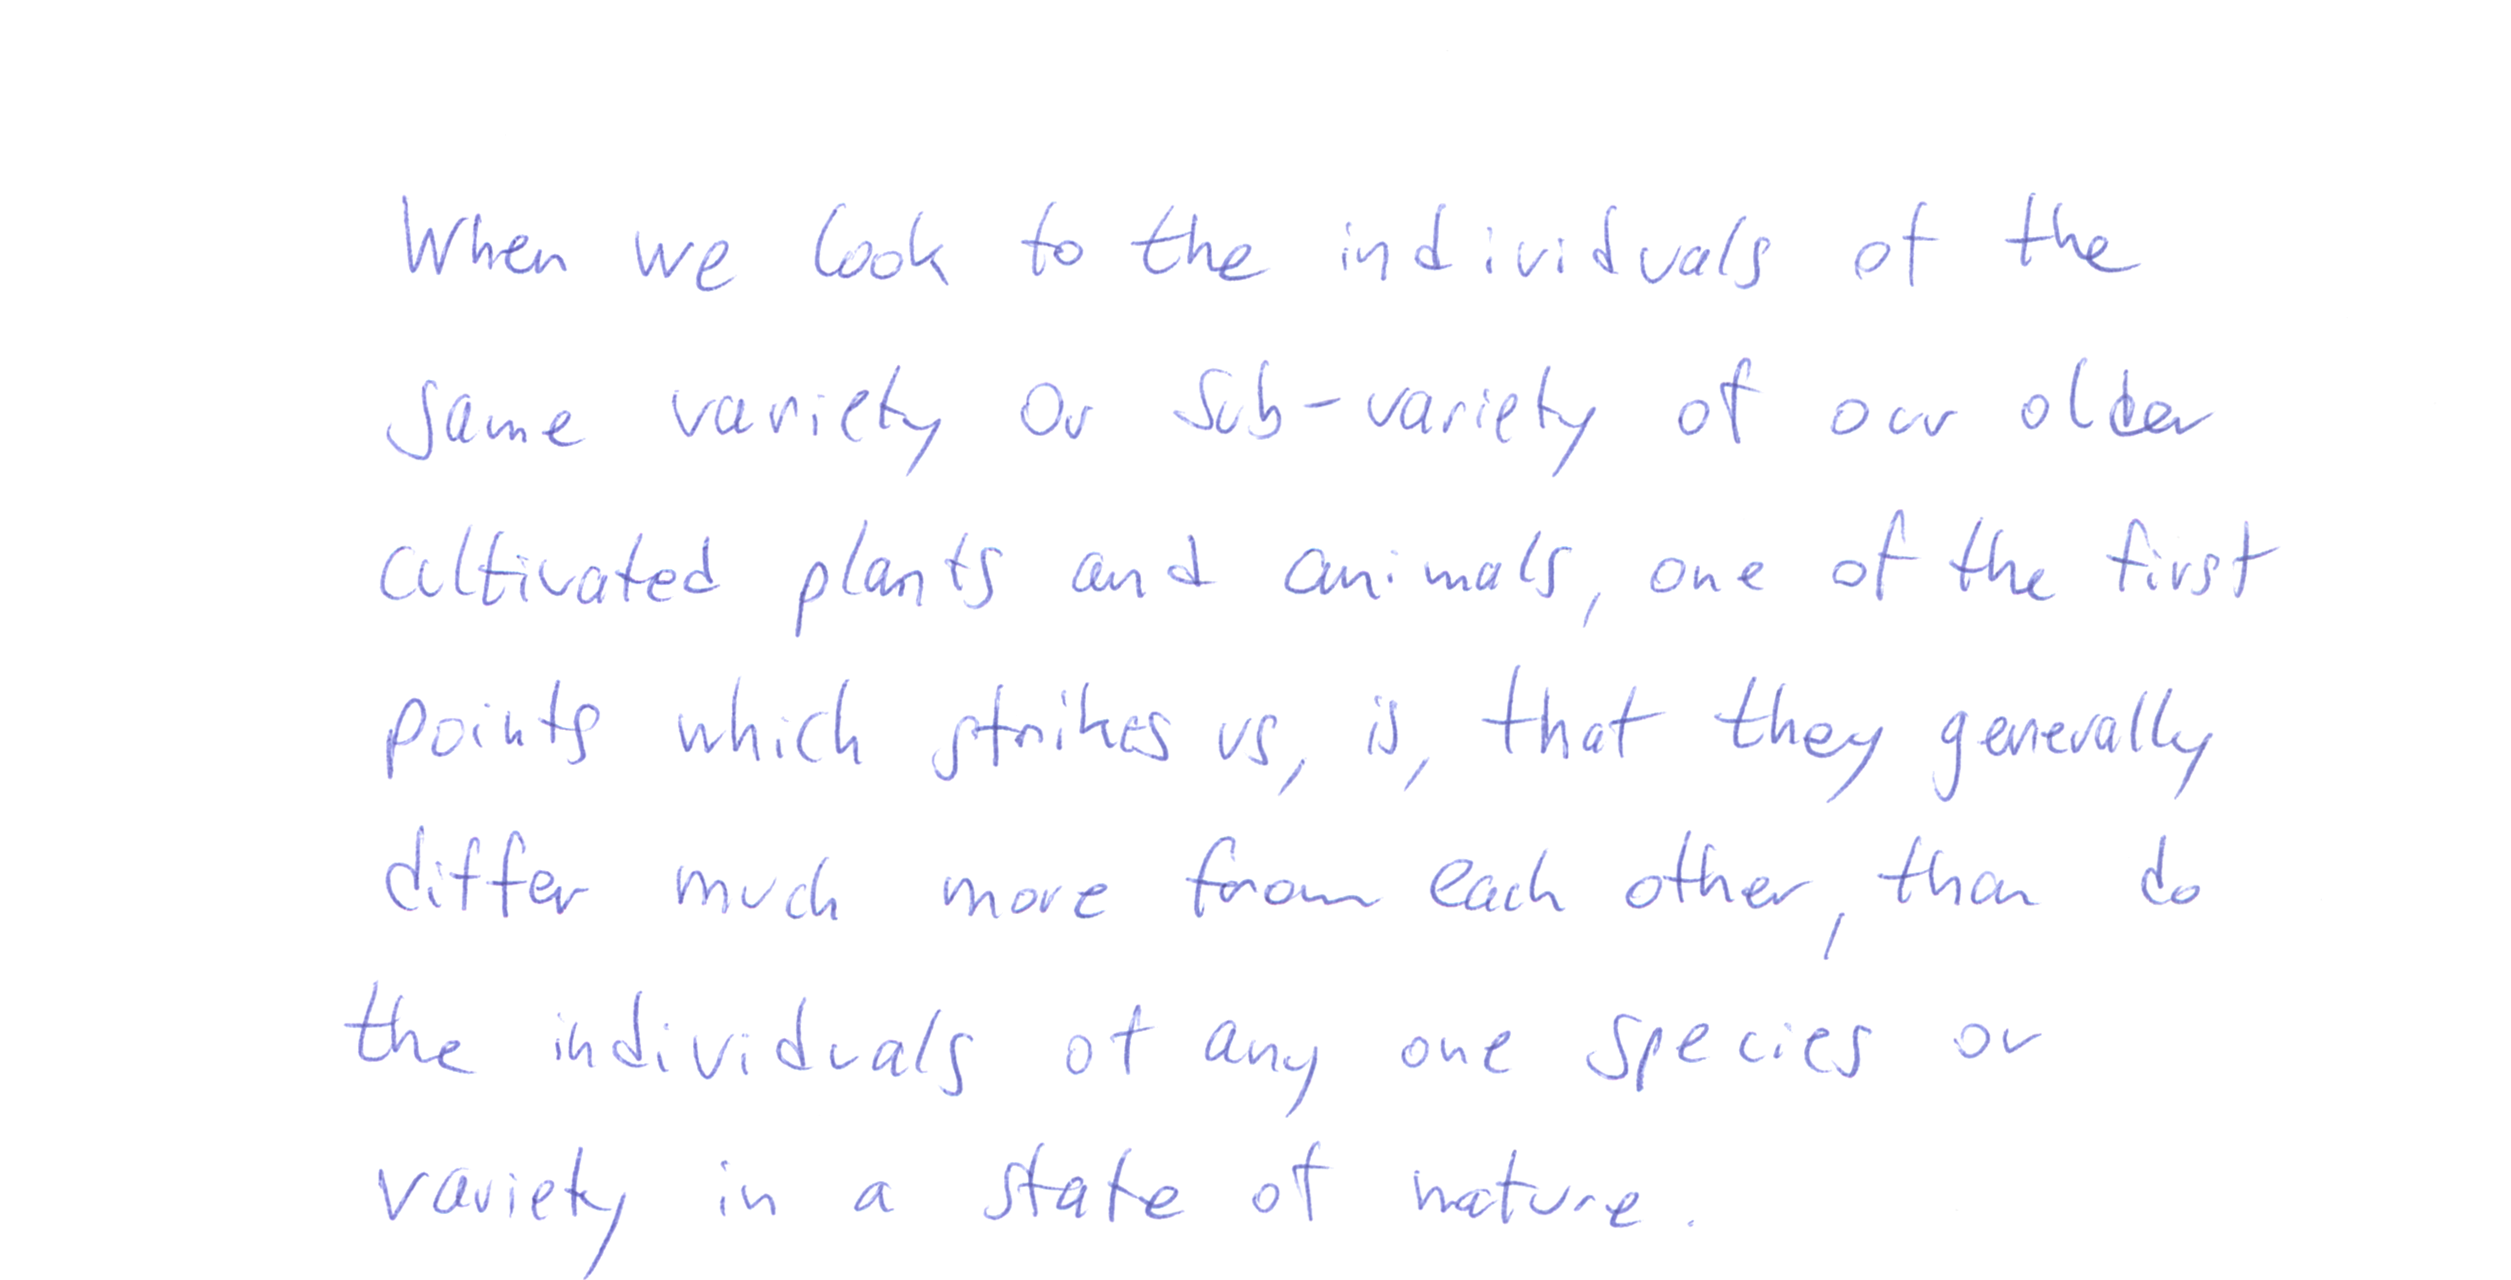 When we look to the individuals of the
same variety or sub-variety of our older
cultivated plants and animals, one of the first
points which strikes us, is, that they generally
differ much more from each other, than do
the individuals of any one species or
variety in a state of nature.